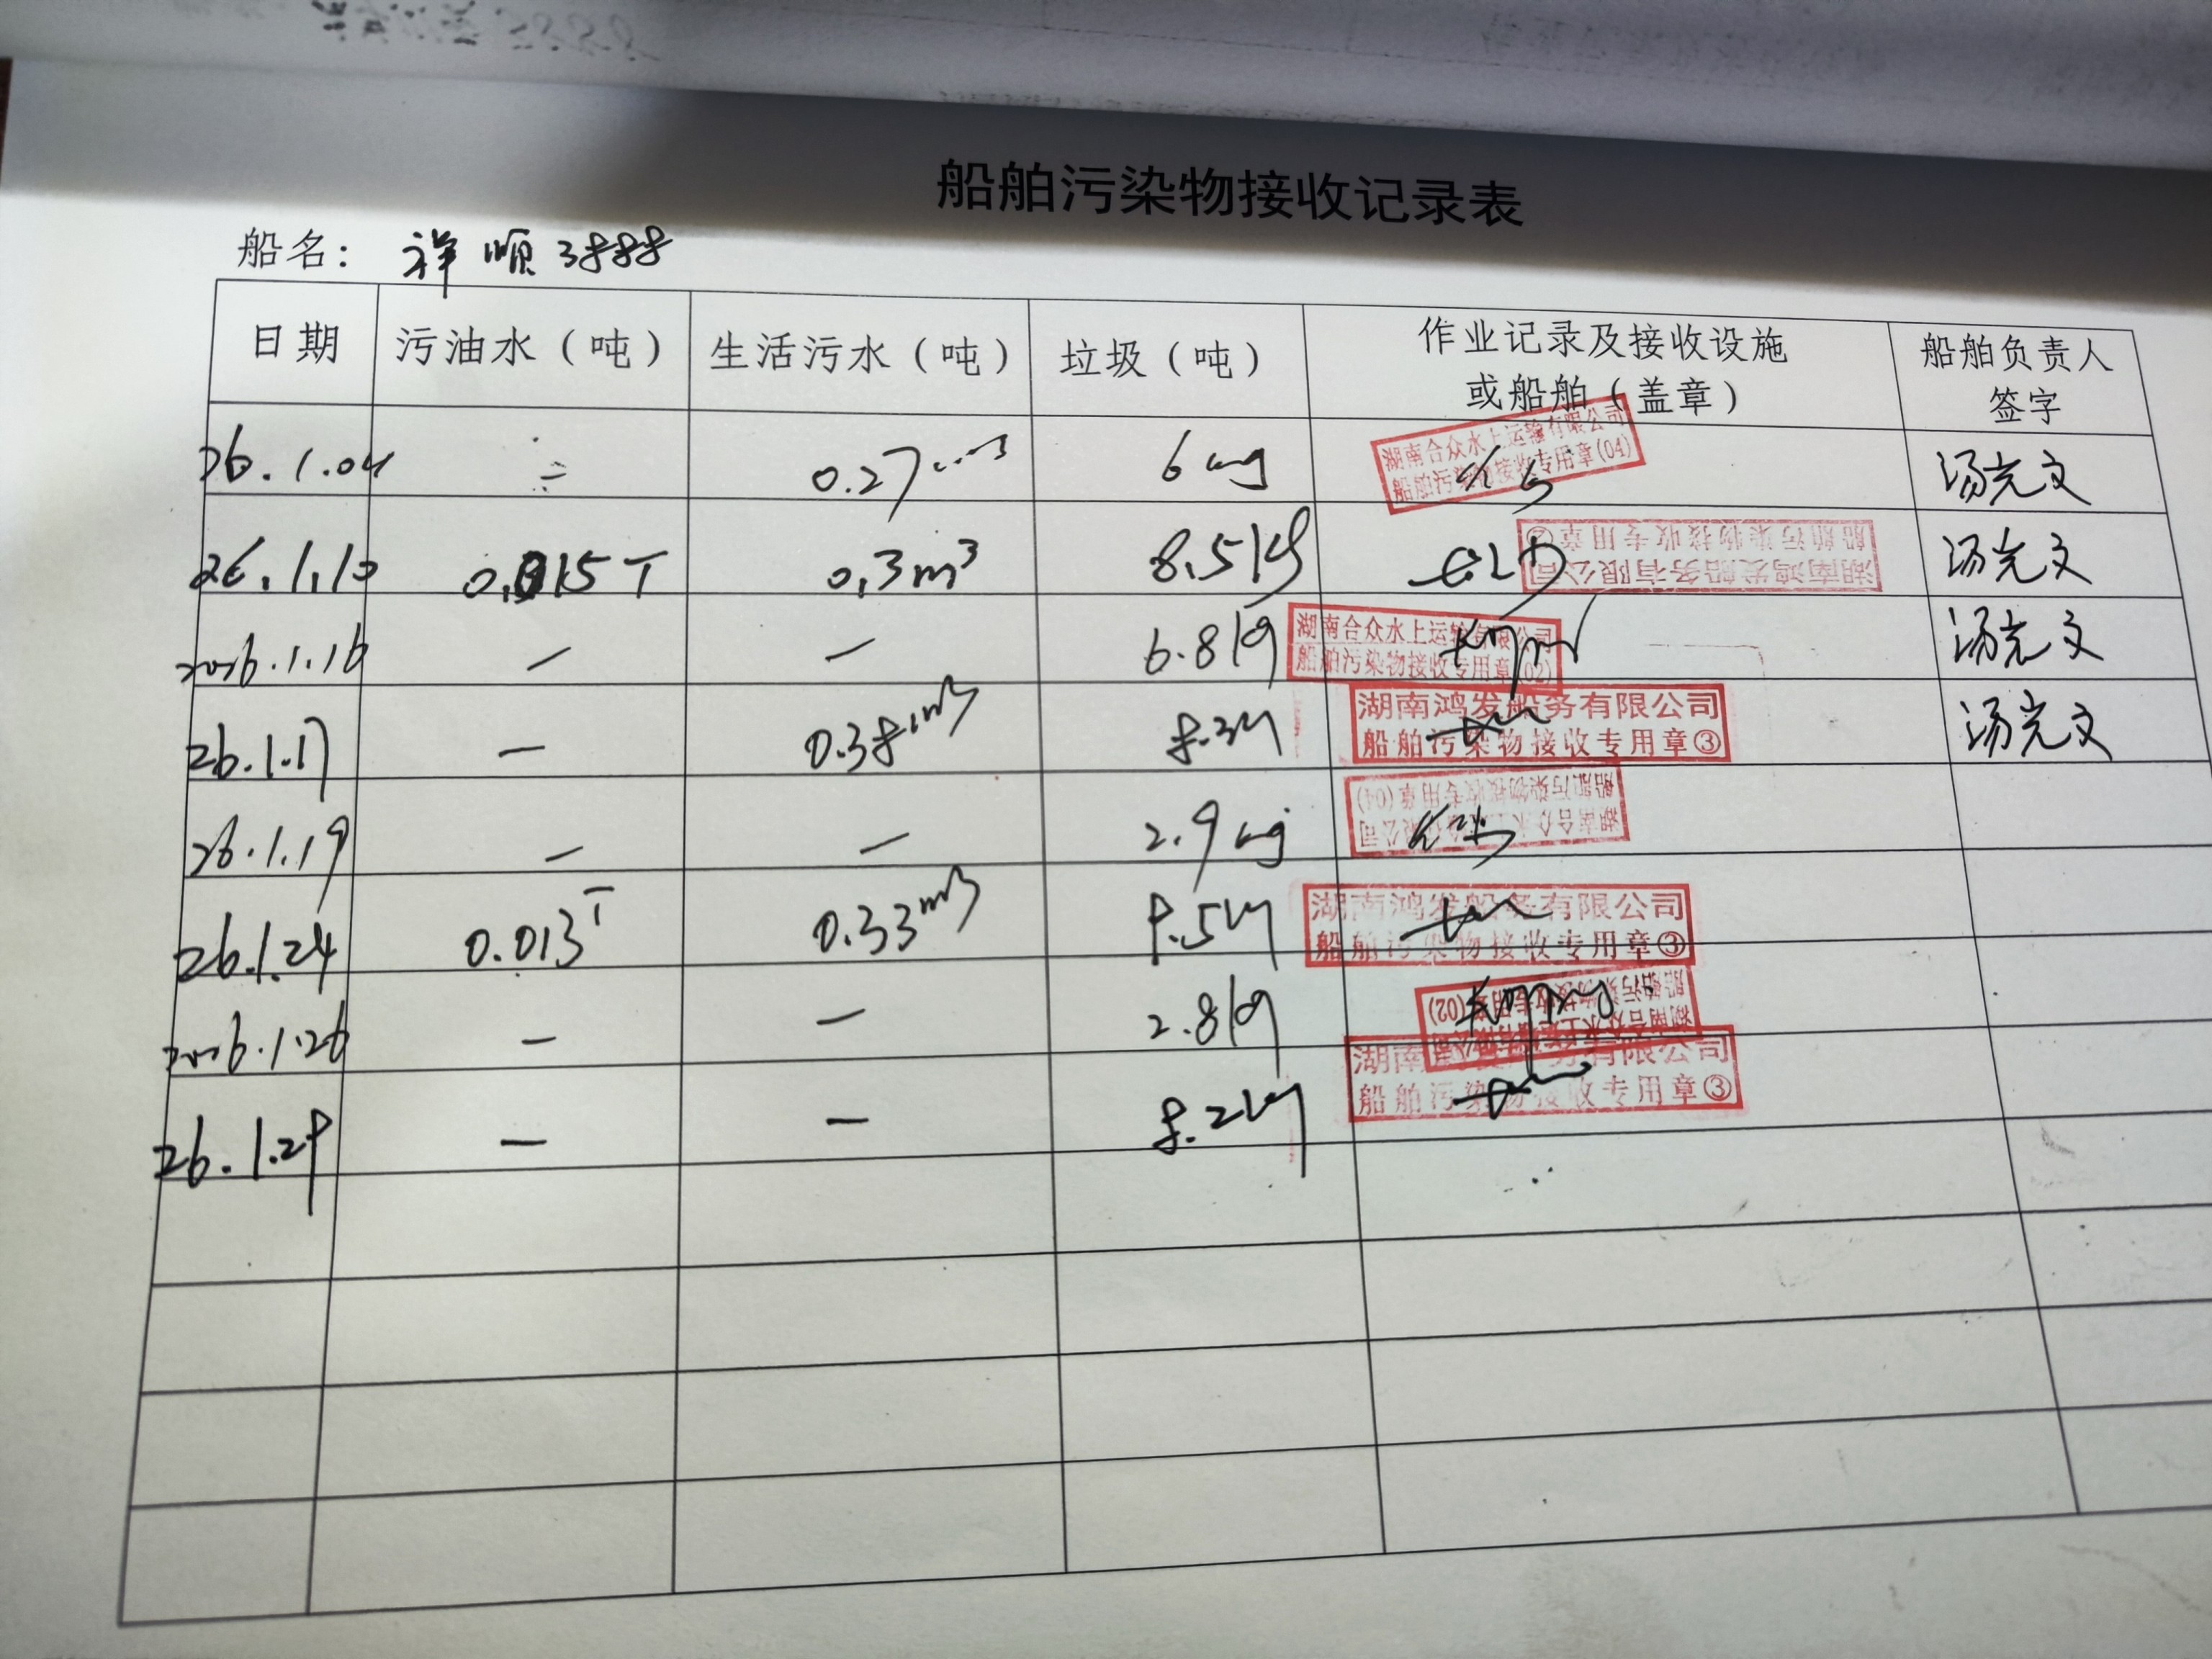 船舶污染物接收记录表
船名： 祥顺3888
日期 污油水（吨） 生活污水（吨） 垃圾（吨） 作业记录及接收设施或船舶（盖章） 船舶负责人签字
26.1.04 — 0.27m³ 6kg 湖南合众水上运输有限公司 船舶污染物接收专用章(04) 汤光文
26.1.10 0.015T 0.3m³ 8.5kg 湖南鸿发船务有限公司 船舶污染物接收专用章② 汤光文
2026.1.16 — — 6.8kg 湖南合众水上运输有限公司 船舶污染物接收专用章(02) 汤光文
26.1.17 — 0.38m³ 8.3kg 湖南鸿发船务有限公司 船舶污染物接收专用章③ 汤光文
26.1.19 — — 2.9kg 湖南合众水上运输有限公司 船舶污染物接收专用章(04)
26.1.24 0.013T 0.33m³ 8.5kg 湖南鸿发船务有限公司 船舶污染物接收专用章③
2026.1.26 — — 2.8kg 湖南合众水上运输有限公司 船舶污染物接收专用章(02)
26.1.28 — — 8.2kg 湖南鸿发船务有限公司 船舶污染物接收专用章③